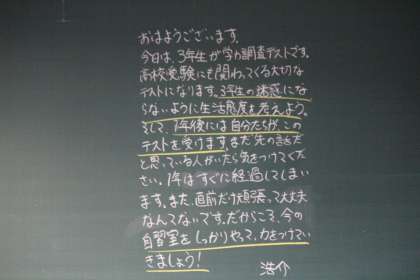 おはようございます。
今日は、3年生が学力調査テストです。
高校受験にも関わってくる大切な
テストになります。3年生の迷惑にな
らないように生活態度を考えよう。
そして、1年後には自分たちが、この
テストを受けます。まだ先の話だ
と思っている人がいたら気をつけてくだ
さい。1年はすぐに経過してしまい
ます。また、直前だけ頑張って大丈夫
なんてないです。だからこそ、今の
自習室をしっかりやって、力をつけてい
きましょう！
浩介